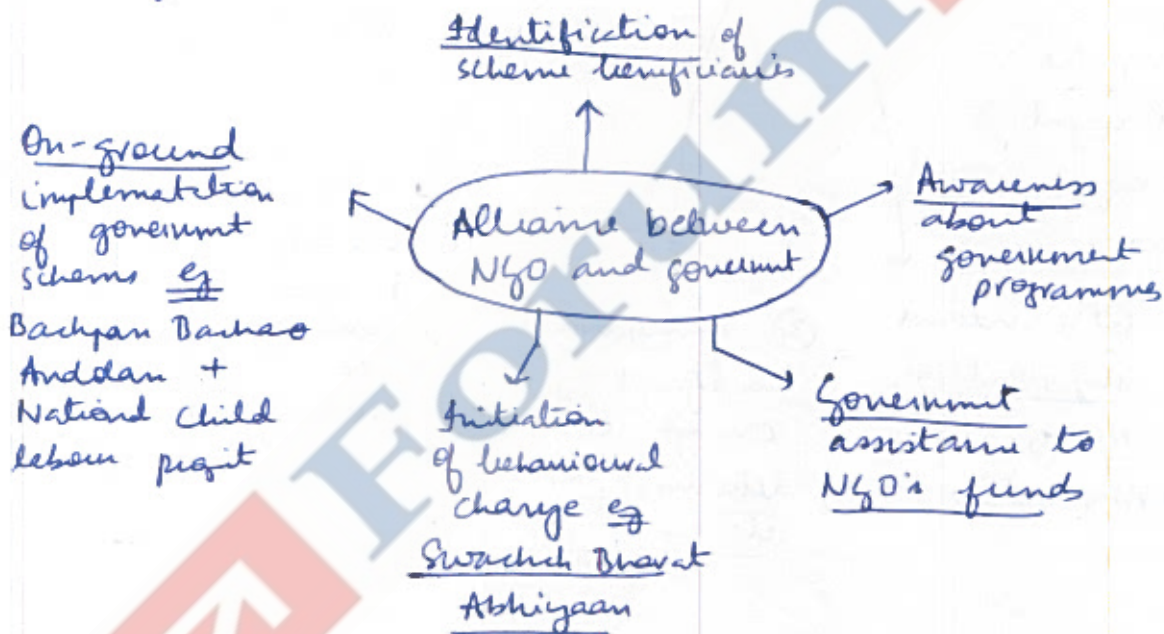 Identification of
scheme beneficiaries
On-ground
implementation
of government
schems eg
Bachpan Bachao
Andolan +
National Child
labour projit
Alliance between
NGO and governmt
Awareness
about
government
programmes
Initiation
of behavioural
change eg
Swachch Bharat
Abhiyaan
Government
assistance to
NGO's funds
Forum